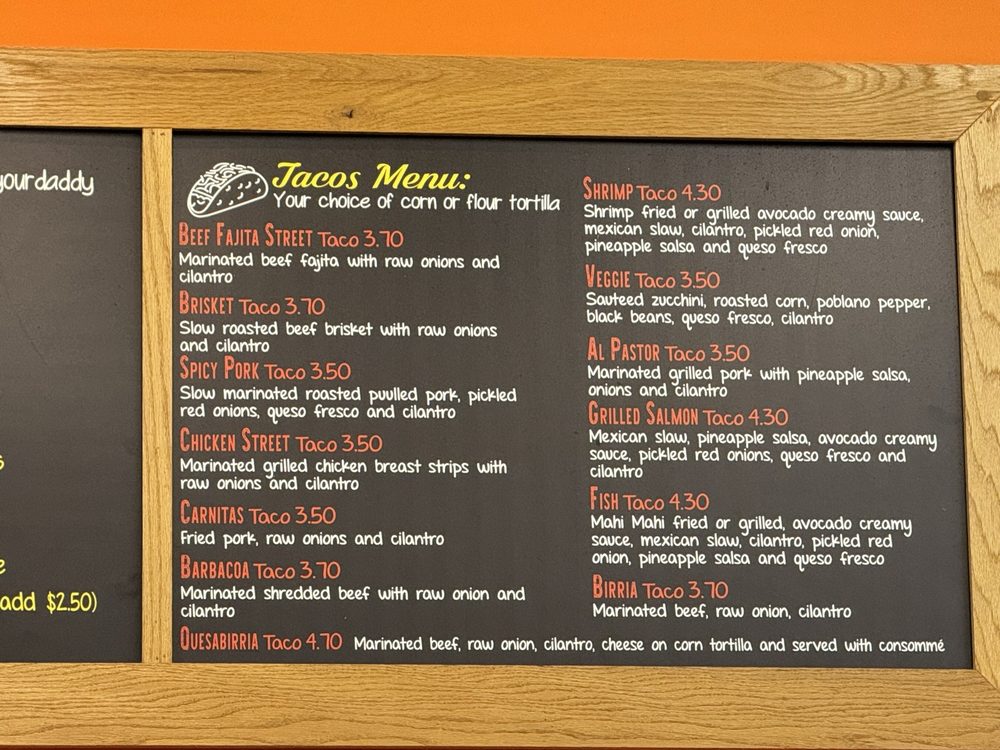 yourdaddy
s
e
add $2.50)
Tacos Menu:
Your choice of corn or flour tortilla
BEEF FAJITA STREET Taco 3.70
Marinated beef fajita with raw onions and
cilantro
BRISKET Taco 3.70
Slow roasted beef brisket with raw onions
and cilantro
SPICY PORK Taco 3.50
Slow marinated roasted puulled pork, pickled
red onions, queso fresco and cilantro
CHICKEN STREET Taco 3.50
Marinated grilled chicken breast strips with
raw onions and cilantro
CARNITAS Taco 3.50
Fried pork, raw onions and cilantro
BARBACOA Taco 3.70
Marinated shredded beef with raw onion and
cilantro
SHRIMP Taco 4.30
Shrimp fried or grilled avocado creamy sauce,
mexican slaw, cilantro, pickled red onion,
pineapple salsa and queso fresco
VEGGIE Taco 3.50
Sauteed zucchini, roasted corn, poblano pepper,
black beans, queso fresco, cilantro
AL PASTOR Taco 3.50
Marinated grilled pork with pineapple salsa,
onions and cilantro
GRILLED SALMON Taco 4.30
Mexican slaw, pineapple salsa, avocado creamy
sauce, pickled red onions, queso fresco and
cilantro
FISH Taco 4.30
Mahi Mahi fried or grilled, avocado creamy
sauce, mexican slaw, cilantro, pickled red
onion, pineapple salsa and queso fresco
BIRRIA Taco 3.70
Marinated beef, raw onion, cilantro
QUESABIRRIA Taco 4.70 Marinated beef, raw onion, cilantro, cheese on corn tortilla and served with consommé